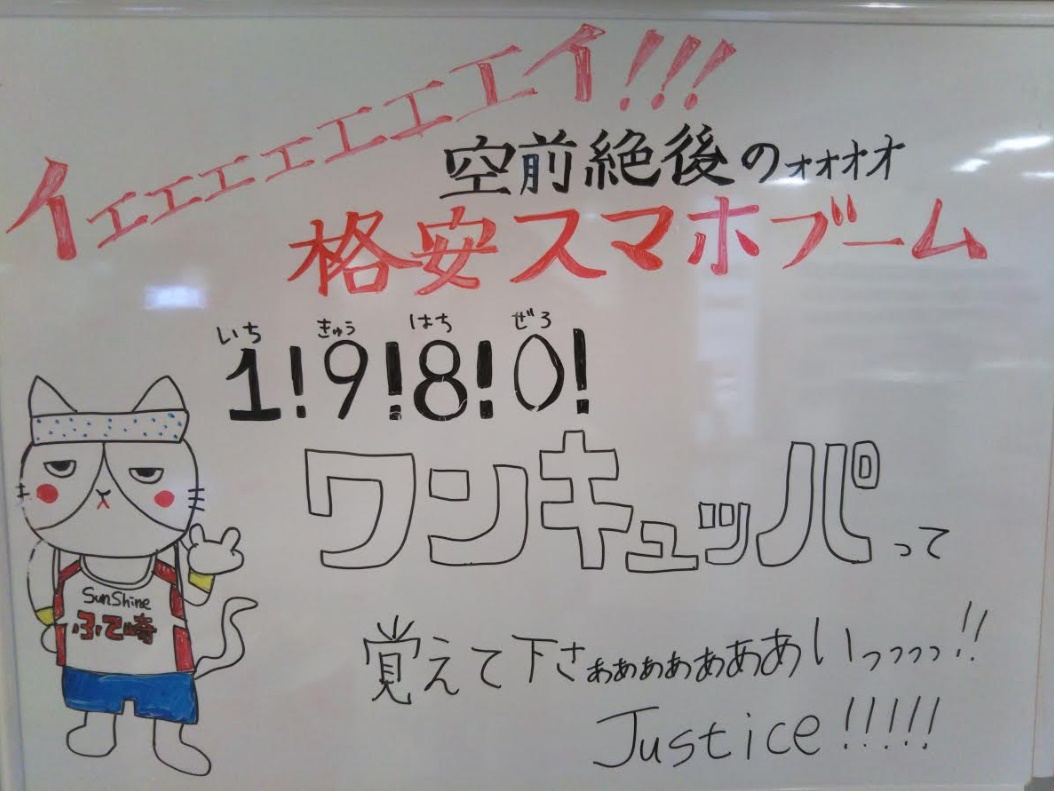 イェェェェエエエイ!!!
空前絶後のォォオオ
格安スマホブーム
いち きゅう はち ぜろ
1!9!8!0!
ワンキュッパって
覚えて下さぁぁぁぁぁあああいっっっっ!!
Justice!!!!!
SunShine
ふて崎